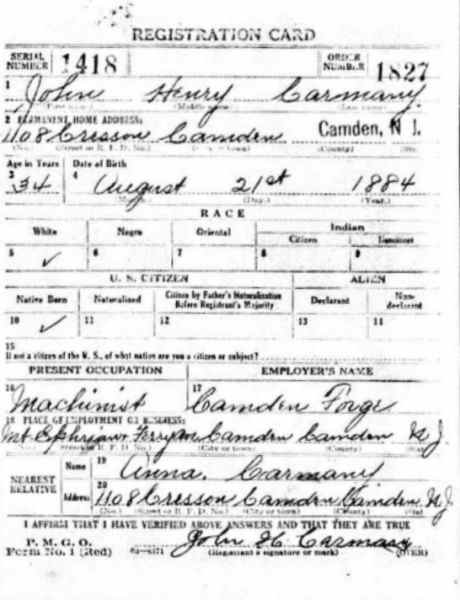 REGISTRATION CARD
SERIAL NUMBER 1418 ORDER NUMBER 1827
1 John Henry Carmany
(First name) (Middle name) (Last name)
2 PERMANENT HOME ADDRESS:
1108 Cresson Camden Camden, N J.
(No.) (Street or R. F. D. No.) (City or town) (County) (State)
Age in Years Date of Birth
3 34 4 August 21st 1884
(Month) (Day) (Year)
RACE
White Negro Oriental Indian
Citizen Noncitizen
5 ✓ 6 7 8 9
U. S. CITIZEN ALIEN
Native Born Naturalized Citizen by Father's Naturalization Before Registrant's Majority Declarant Non-declarant
10 ✓ 11 12 13 14
15
If not a citizen of the U. S., of what nation are you a citizen or subject?
PRESENT OCCUPATION EMPLOYER'S NAME
16 Machinist 17 Camden Forge
18 PLACE OF EMPLOYMENT OR BUSINESS:
Mt Ephriam Camden Camden N J
(City or town) (County) (State)
NEAREST RELATIVE
Name 19 Anna. Carmany
Address 20 1108 Cresson Camden Camden N J
(No.) (Street or R. F. D. No.) (City or town) (County) (State)
I AFFIRM THAT I HAVE VERIFIED ABOVE ANSWERS AND THAT THEY ARE TRUE
P. M. G. O.
Form No. 1 (Red) John H Carmany
(Registrant's signature or mark) (OVER)